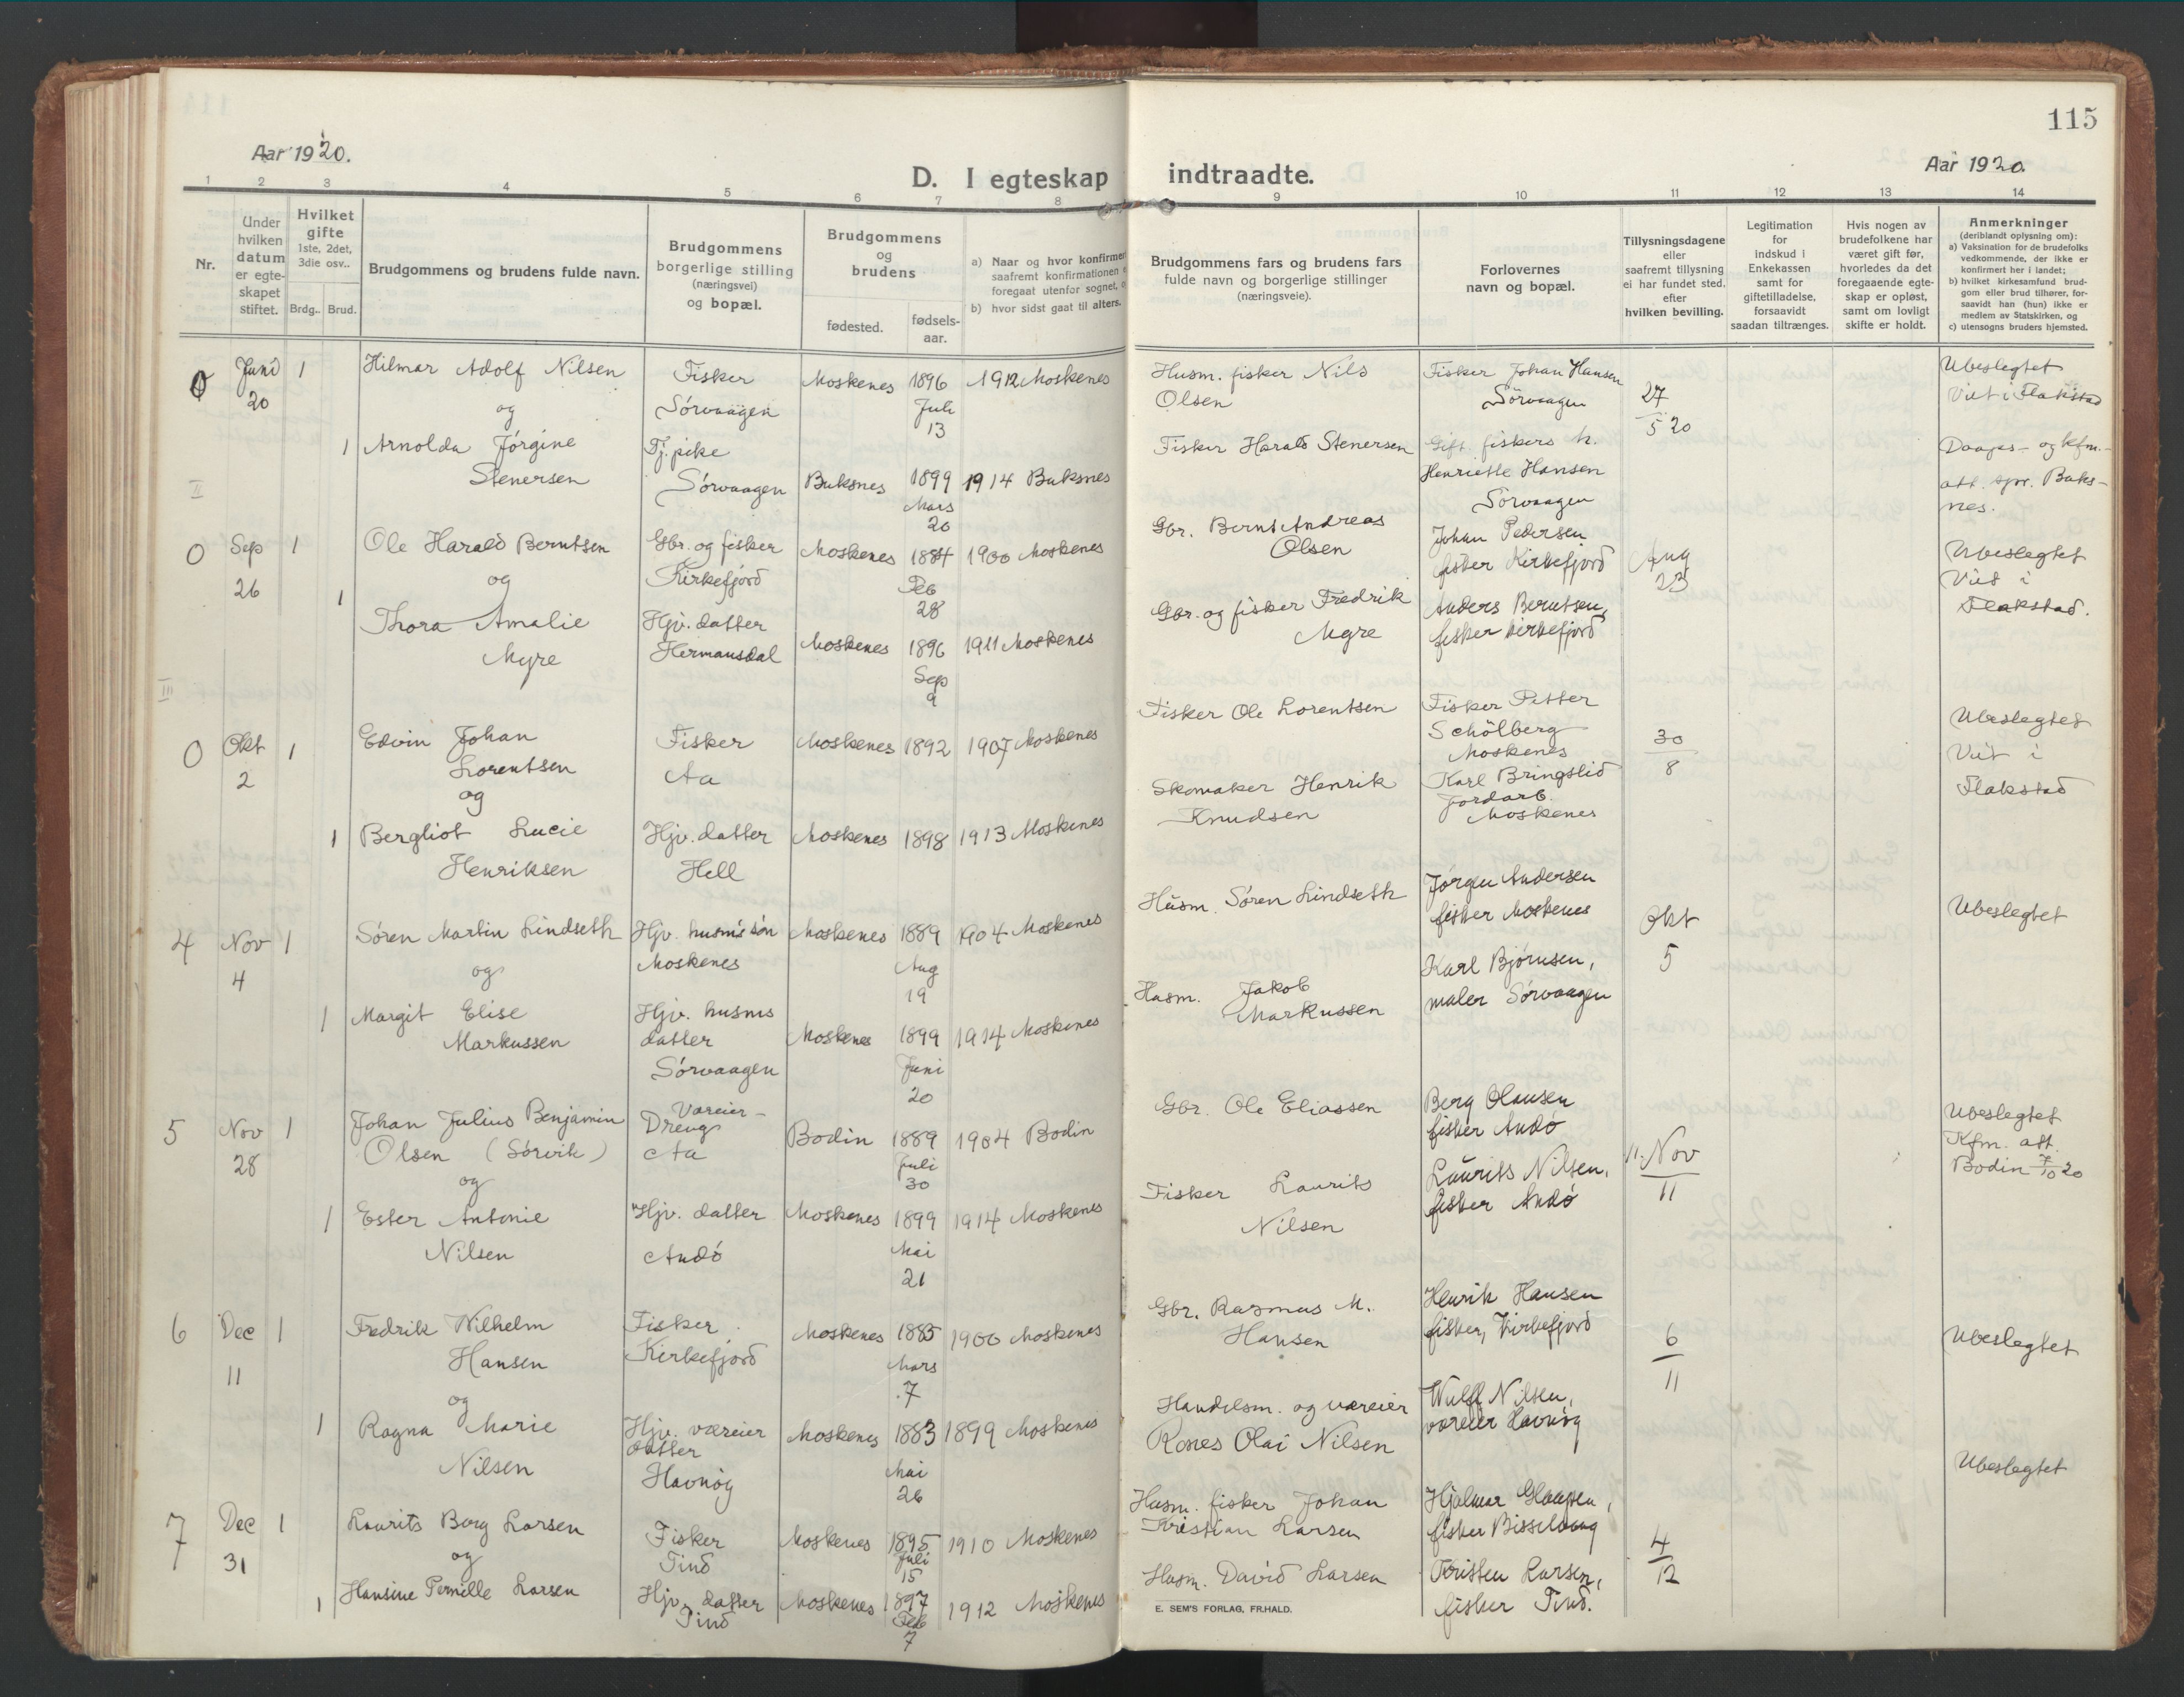 115
Aar 1920.
D. I egteskap indtraadte.
Aar 1920.
1 2 3 4 5 6 7 8 9 10 11 12 13 14
Nr.
Under hvilken datum er egte-skapet stiftet.
Hvilket gifte 1ste, 2det, 3die osv..
Brdg.. Brud.
Brudgommens og brudens fulde navn.
Brudgommens borgerlige stilling (næringsvei) og bopæl.
Brudgommens og brudens
fødested.
fødsels-aar.
a) Naar og hvor konfirmer
saafremt konfirmationen
foregaat utenfor sognet,
b) hvor sidst gaat til alters.
Brudgommens fars og brudens fars
fulde navn og borgerlige stillinger
(næringsveie).
Forlovernes
navn og bopæl.
Tillysningsdagene
eller
saafremt tillysning
ei har fundet sted,
efter
hvilken bevilling.
Legitimation
for
indskud i
Enkekassen
samt for
giftetilladelse,
forsaavidt
saadan tiltrænges.
Hvis nogen av
brudefolkene har
været gift før,
hvorledes da det
foregaaende egte-
skap er opløst,
samt om lovligt
skifte er holdt.
Anmerkninger
(deriblandt oplysning om):
a) Vaksination for de brudefolks
vedkommende, der ikke er
konfirmert her i landet;
b) hvilket kirkesamfund brud-
gom eller brud tilhører, for-
saavidt han (hun) ikke er
medlem av Statskirken, og
c) utensogns bruders hjemsted.
0 Juni 20 1 Hilmar Adolf Nilsen Fisker Sörvaagen Moskenes 1896 Juli 13 1912 Moskenes Husm. fisker Nils Olsen Fisker Johan Hansen Sörvaagen 27/5 20 Ubeslegtet Viet i Flakstad
og
1 Arnolda Jörgine Stenersen Tj. pike Sörvaagen Buksnes 1899 Mars 20 1914 Buksnes Fisker Harald Stenersen Gift. fiskers h. Henriette Hansen Sörvaagen Daaps- og kfm.- att. spr. Buks-nes.
II
0 Sep 26 1 Ole Harald Berntsen Gbr. og fisker Kirkefjord Moskenes 1884 Feb 28 1900 Moskenes Gbr. Bernt Andreas Olsen Johan Pedersen fisker Kirkefjord Aug 23 Ubeslegtet Viet i Flakstad.
og
1 Thora Amalie Myre Hjv. datter Hermansdal Moskenes 1896 Sep 9 1911 Moskenes Gbr. og fisker Fredrik Myre Anders Berntsen, fisker Kirkefjord
III
0 Okt 2 1 Edvin Johan Lorentsen Fisker Aa Moskenes 1892 1907 Moskenes Fisker Ole Lorentsen Fisker Petter Schölberg Moskenes 30/8 Ubeslegtet Viet i Flakstad
og
1 Bergliot Lucie Henriksen Hjv. datter Hell Moskenes 1898 1913 Moskenes Skomaker Henrik Knudsen Karl Bringslid Jordarb. Moskenes
4 Nov 4 1 Søren Martin Lindseth Hjv. husm's søn Moskenes Moskenes 1889 Aug 19 1904 Moskenes Husm. Søren Lindseth Jørgen Andersen fisker Moskenes Okt 5 Ubeslegtet
og
1 Margit Elise Markussen Hjv. husms datter Sörvaagen Moskenes 1899 Juni 20 1914 Moskenes Husm. Jakob Markussen Karl Bjørnsen, maler Sörvaagen
5 Nov 28 1 Johan Julius Benjamin Olsen (Sörvik) Væreier-Dreng Aa Bodin 1889 Juli 30 1904 Bodin Gbr. Ole Eliassen Berg Olausen fisker Andö 11. Nov/11 Ubeslegtet Kfm. att. Bodin 7/10 20
og
1 Ester Antonie Nilsen Hjv. datter Andö Moskenes 1899 Mai 21 1914 Moskenes Fisker Laurits Nilsen Laurits Nilsen, fisker Andö
6 Dec 11 1 Fredrik Wilhelm Hansen Fisker Kirkefjord Moskenes 1885 Mars 7 1900 Moskenes Gbr. Rasmus M. Hansen Henrik Hansen fisker, Kirkefjord 6/11 Ubeslegtet
og
1 Ragna Marie Nilsen Hjv. væreier datter Havnög Moskenes 1883 Mai 26 1899 Moskenes Handelsm. og væreier Rones Olai Nilsen Wulff Nilsen, væreier Havnög
7 Dec 31 1 Laurits Borg Larsen Fisker Tind Moskenes 1895 Juli 15 1910 Moskenes Husm. fisker Johan Kristian Larsen Hjalmar fisker 4/12 Ubeslegtet
og
1 Hansine Pernille Larsen Hjv. datter Tind Moskenes 1897 Feb 7 1912 Moskenes Husm. David Larsen Kristen Larsen, fisker Tind.
E. SEM'S FORLAG, FR.HALD.